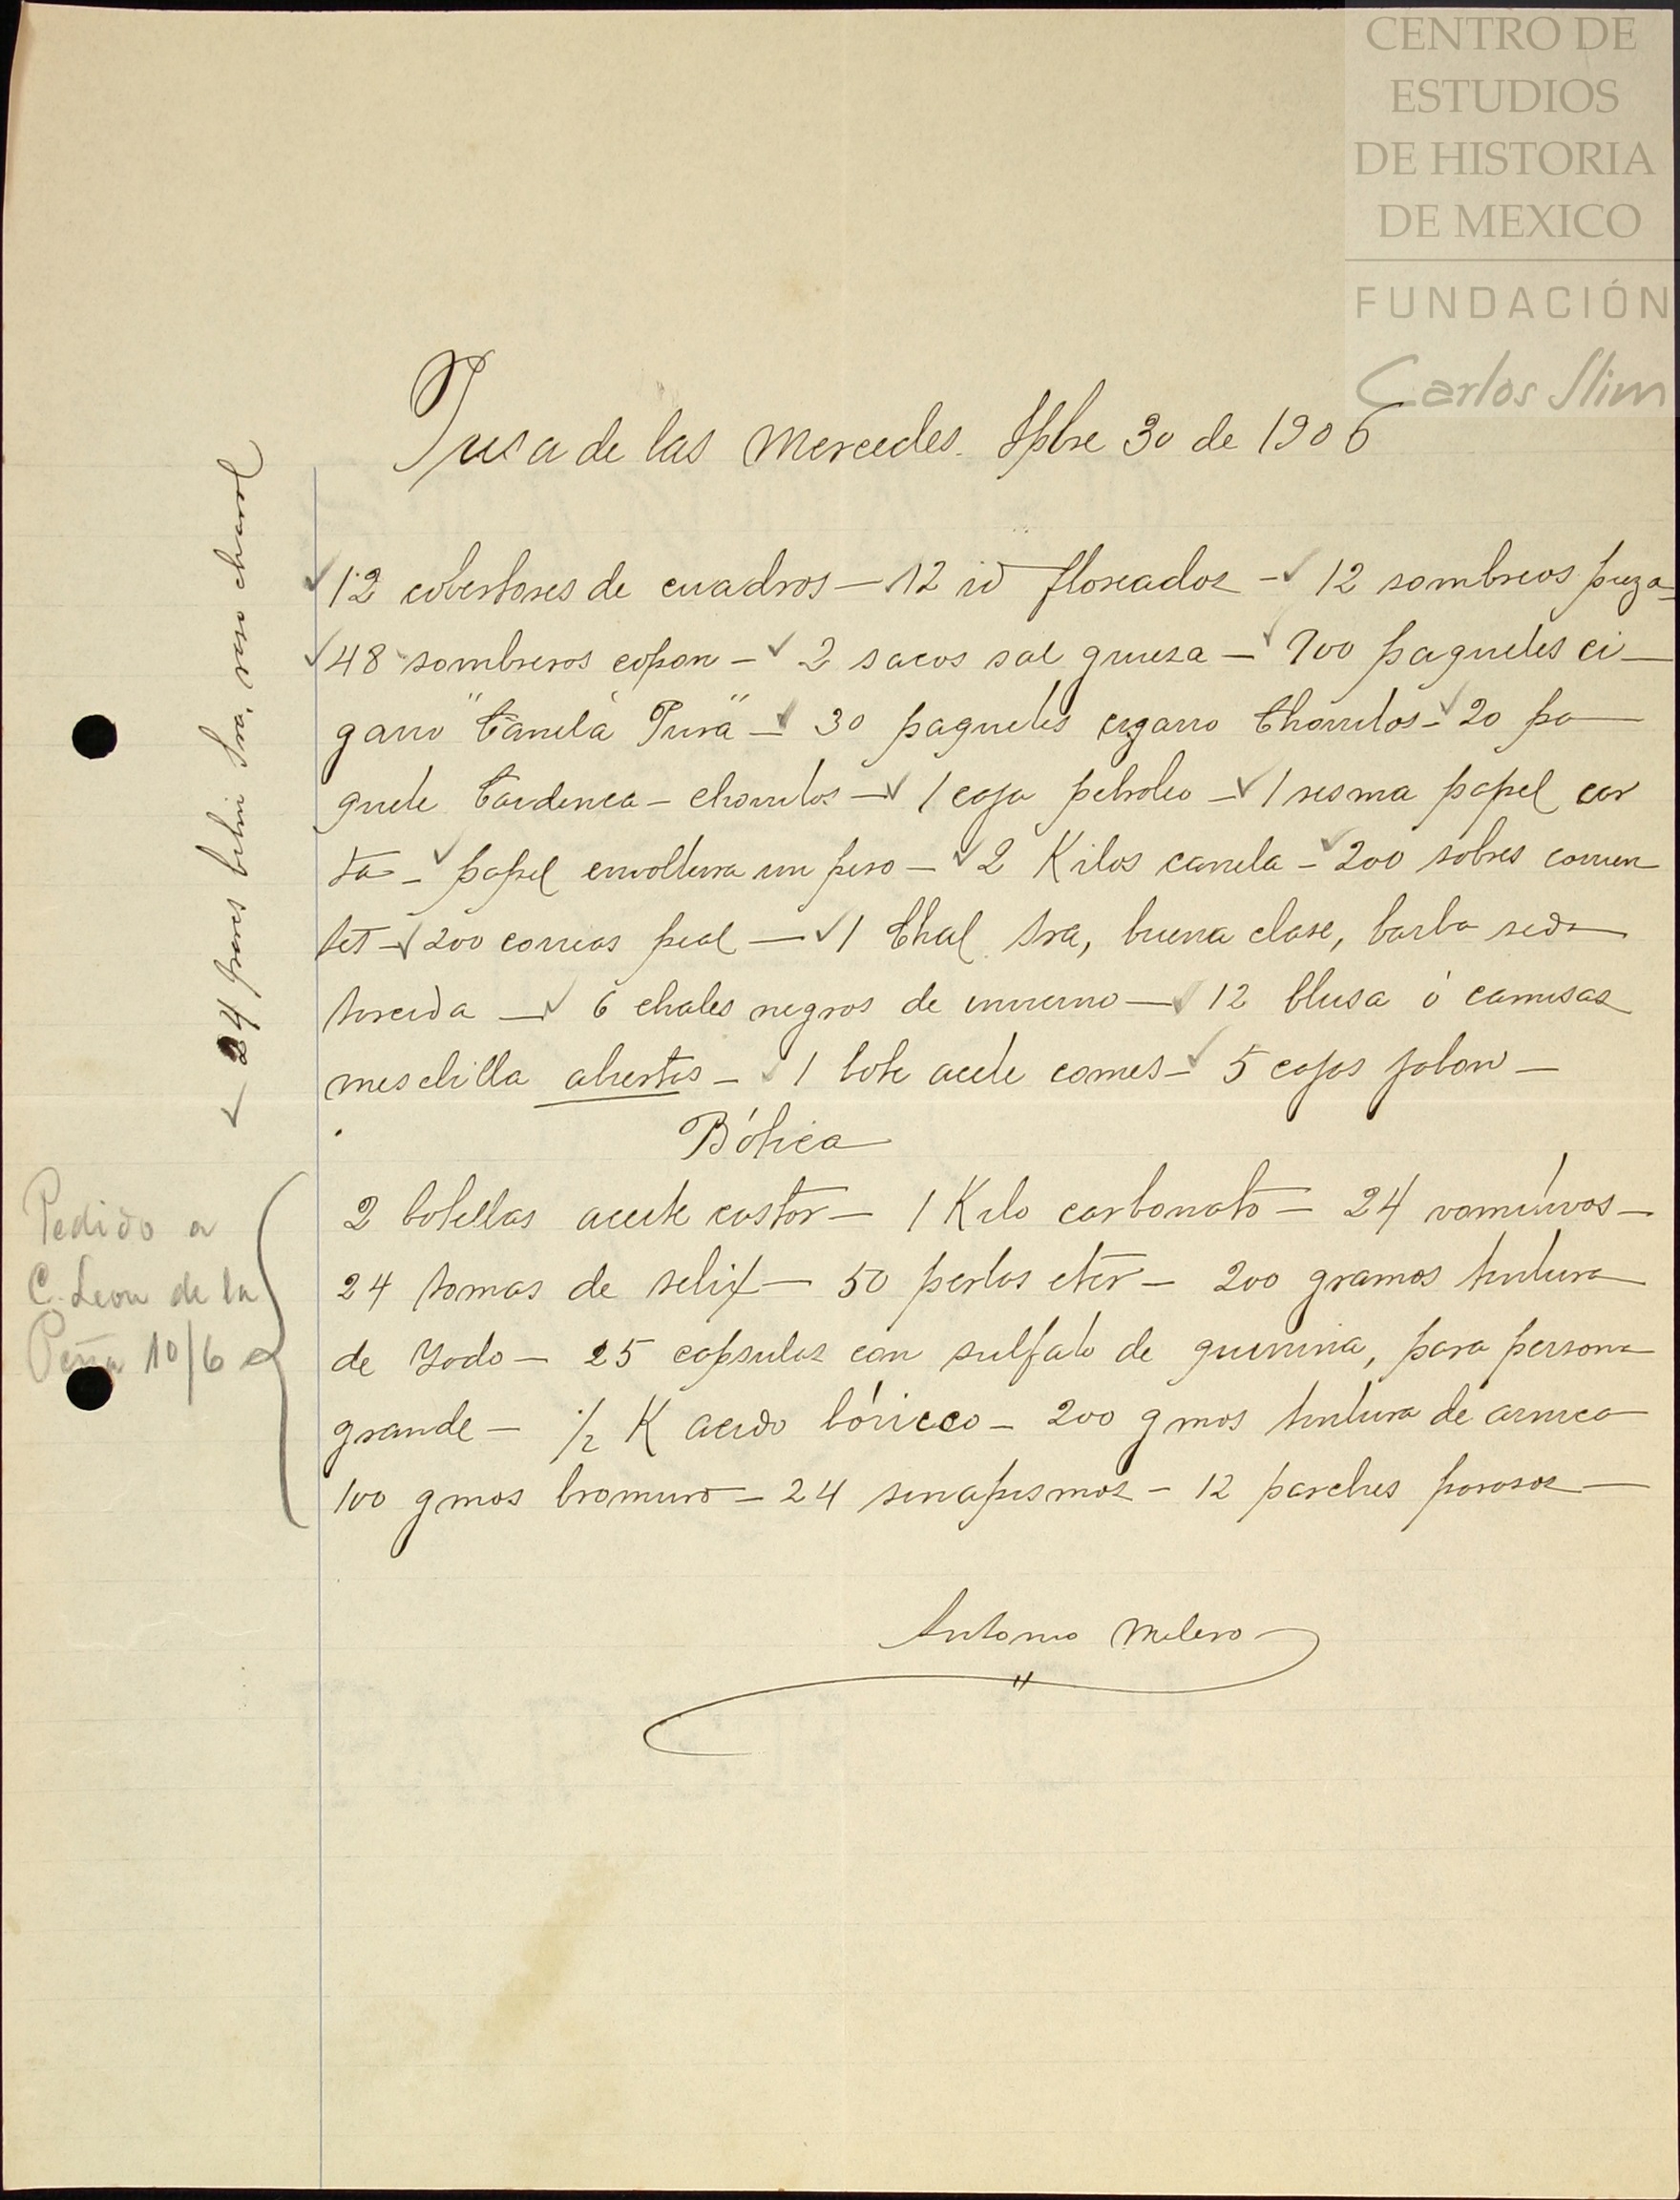 CENTRO DE
ESTUDIOS
DE HISTORIA
DE MEXICO
FUNDACIÓN
Carlos Slim
Presa de las Mercedes. Spbre 30 de 1906
12 cobertores de cuadros — 12 id floreados — 12 sombreros puza-
48 sombreros copon — 2 sacos sal gruesa — 100 paquetes ci-
garro "Canela Pura" — 30 paquetes cigarro Chorritos — 20 pa-
quete Cardenea — chorritos — 1 caja petroleo — 1 resma papel car
ta — papel envoltura un peso — 2 Kilos canela — 200 sobres corrien
tes — 200 correas peal — 1 Chal Sra, buena clase, barba seda
torcida — 6 chales negros de invierno — 12 blusa ó camisas
mesclilla abiertas — 1 bote aceite comer — 5 cajas jabon —
Bótica
2 botellas aceite castor — 1 Kilo carbonato — 24 vomitivos —
24 tomas de selix — 50 perlas eter — 200 gramos tintura
de Yodo — 25 capsulas con sulfato de quinina, para persona
grande — 1/2 K acido bóricco — 200 gmos tintura de arnica
100 gmos bromuro — 24 sinapismos — 12 parches porosos —
Antonio Melero
24 pares botin Sra,
Pedido a
C. Leon de la
Peña 10/6